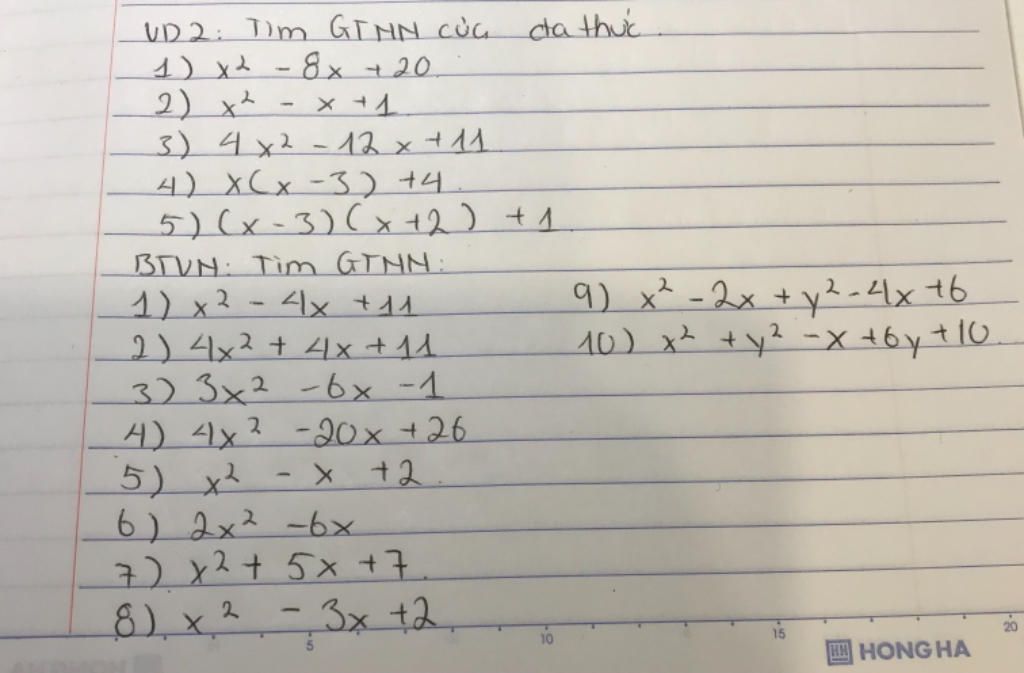 VD2: Tìm GTNN của đa thức.
1) x² - 8x + 20
2) x² - x + 1
3) 4x² - 12x + 11
4) x(x - 3) + 4.
5) (x - 3)(x + 2) + 1
BTVN: Tìm GTNN:
1) x² - 4x + 11
2) 4x² + 4x + 11
3) 3x² - 6x - 1
4) 4x² - 20x + 26
5) x² - x + 2.
6) 2x² - 6x
7) x² + 5x + 7.
8) x² - 3x + 2
9) x² - 2x + y² - 4x + 6
10) x² + y² - x + 6y + 10.
5 10 15 20
HH HONG HA